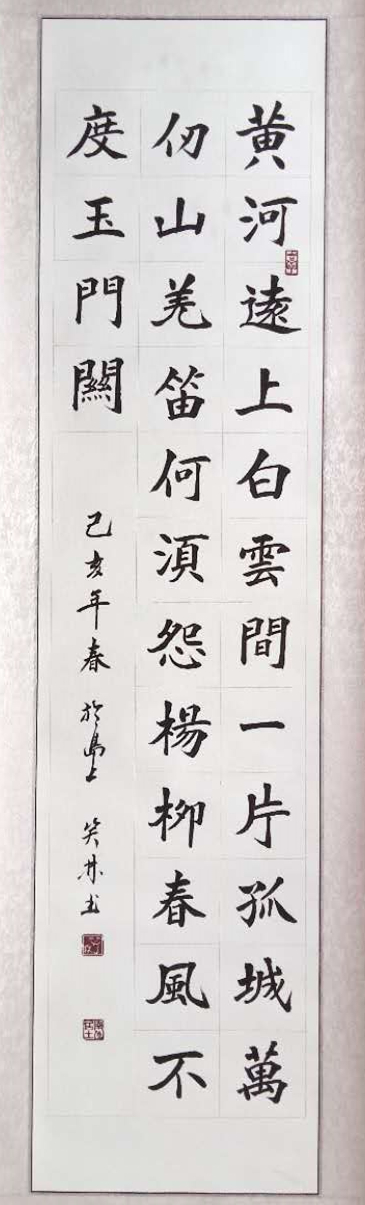 黄河遠上白雲間一片孤城萬
仞山羌笛何湏怨楊柳春風不
度玉門關
己亥年春於島上 笑林书